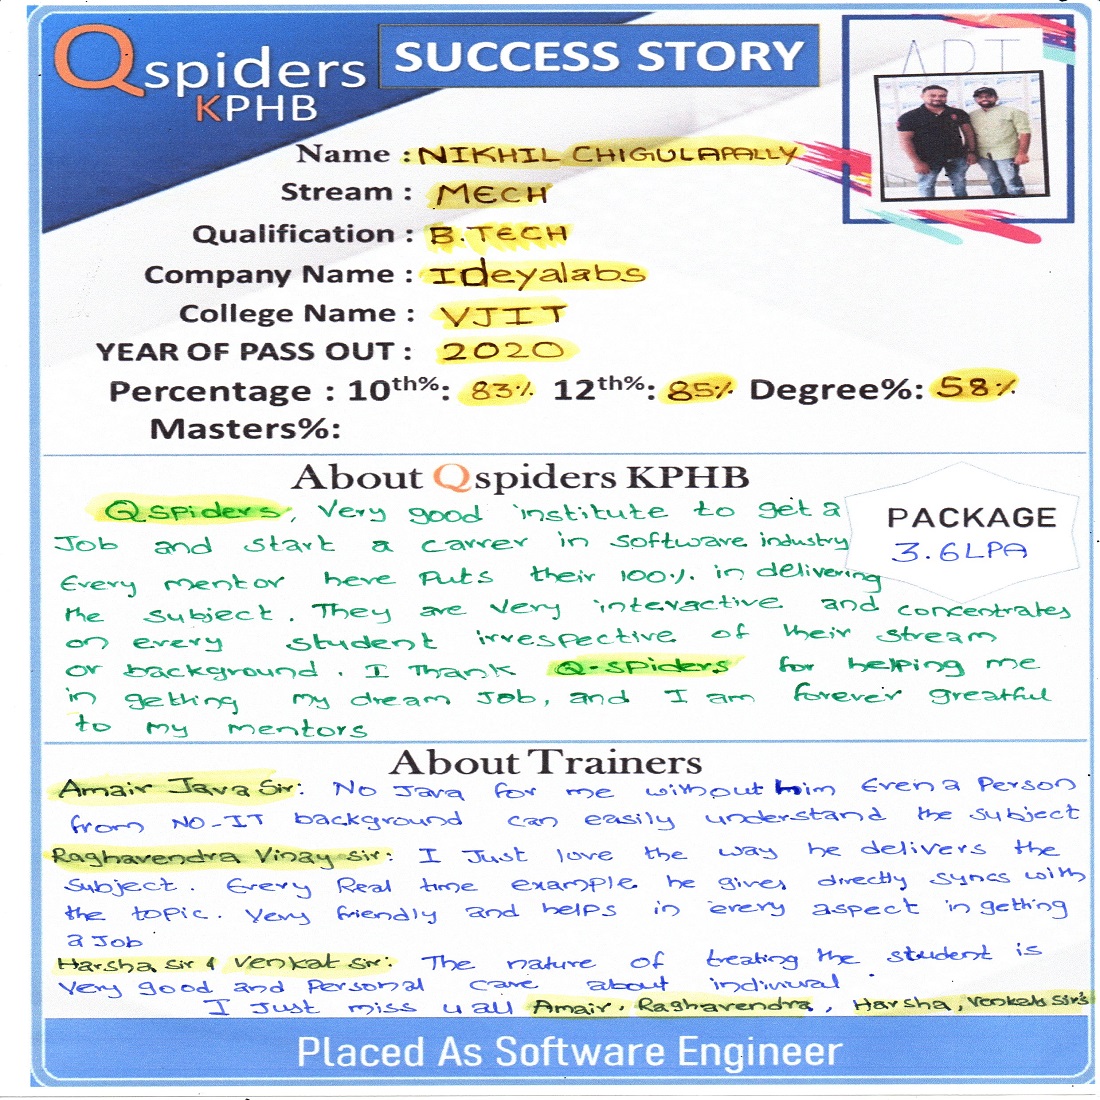 Qspiders
KPHB
SUCCESS STORY
ART
Name : NIKHIL CHIGULAPALLY
Stream : MECH
Qualification : B.TECH
Company Name : Ideyalabs
College Name : VJIT
YEAR OF PASS OUT : 2020
Percentage : 10th%: 83% 12th%: 85% Degree%: 58%
Masters%:
About Qspiders KPHB
PACKAGE
3.6LPA
Qspiders, Very good institute to get a
Job and start a carrer in software industry
Every mentor here Puts their 100% in delivering
the subject. They are very interactive and concentrates
on every student irrespective of their stream
or background. I Thank Q-spiders for helping me
in getting my dream Job, and I am forever greatful
to my mentors
About Trainers
Amair Java Sir: No Java for me without him Even a Person
from NO-IT background can easily understand the subject
Raghavendra Vinay sir: I Just love the way he delivers the
subject. Every Real time example he gives directly syncs with
the topic. Very friendly and helps in every aspect in getting
a Job
Harsha sir & Venkat sir: The nature of treating the student is
very good and Personal care about indivual.
I Just miss u all Amair, Raghavendra, Harsha, Venkat sir's
Placed As Software Engineer